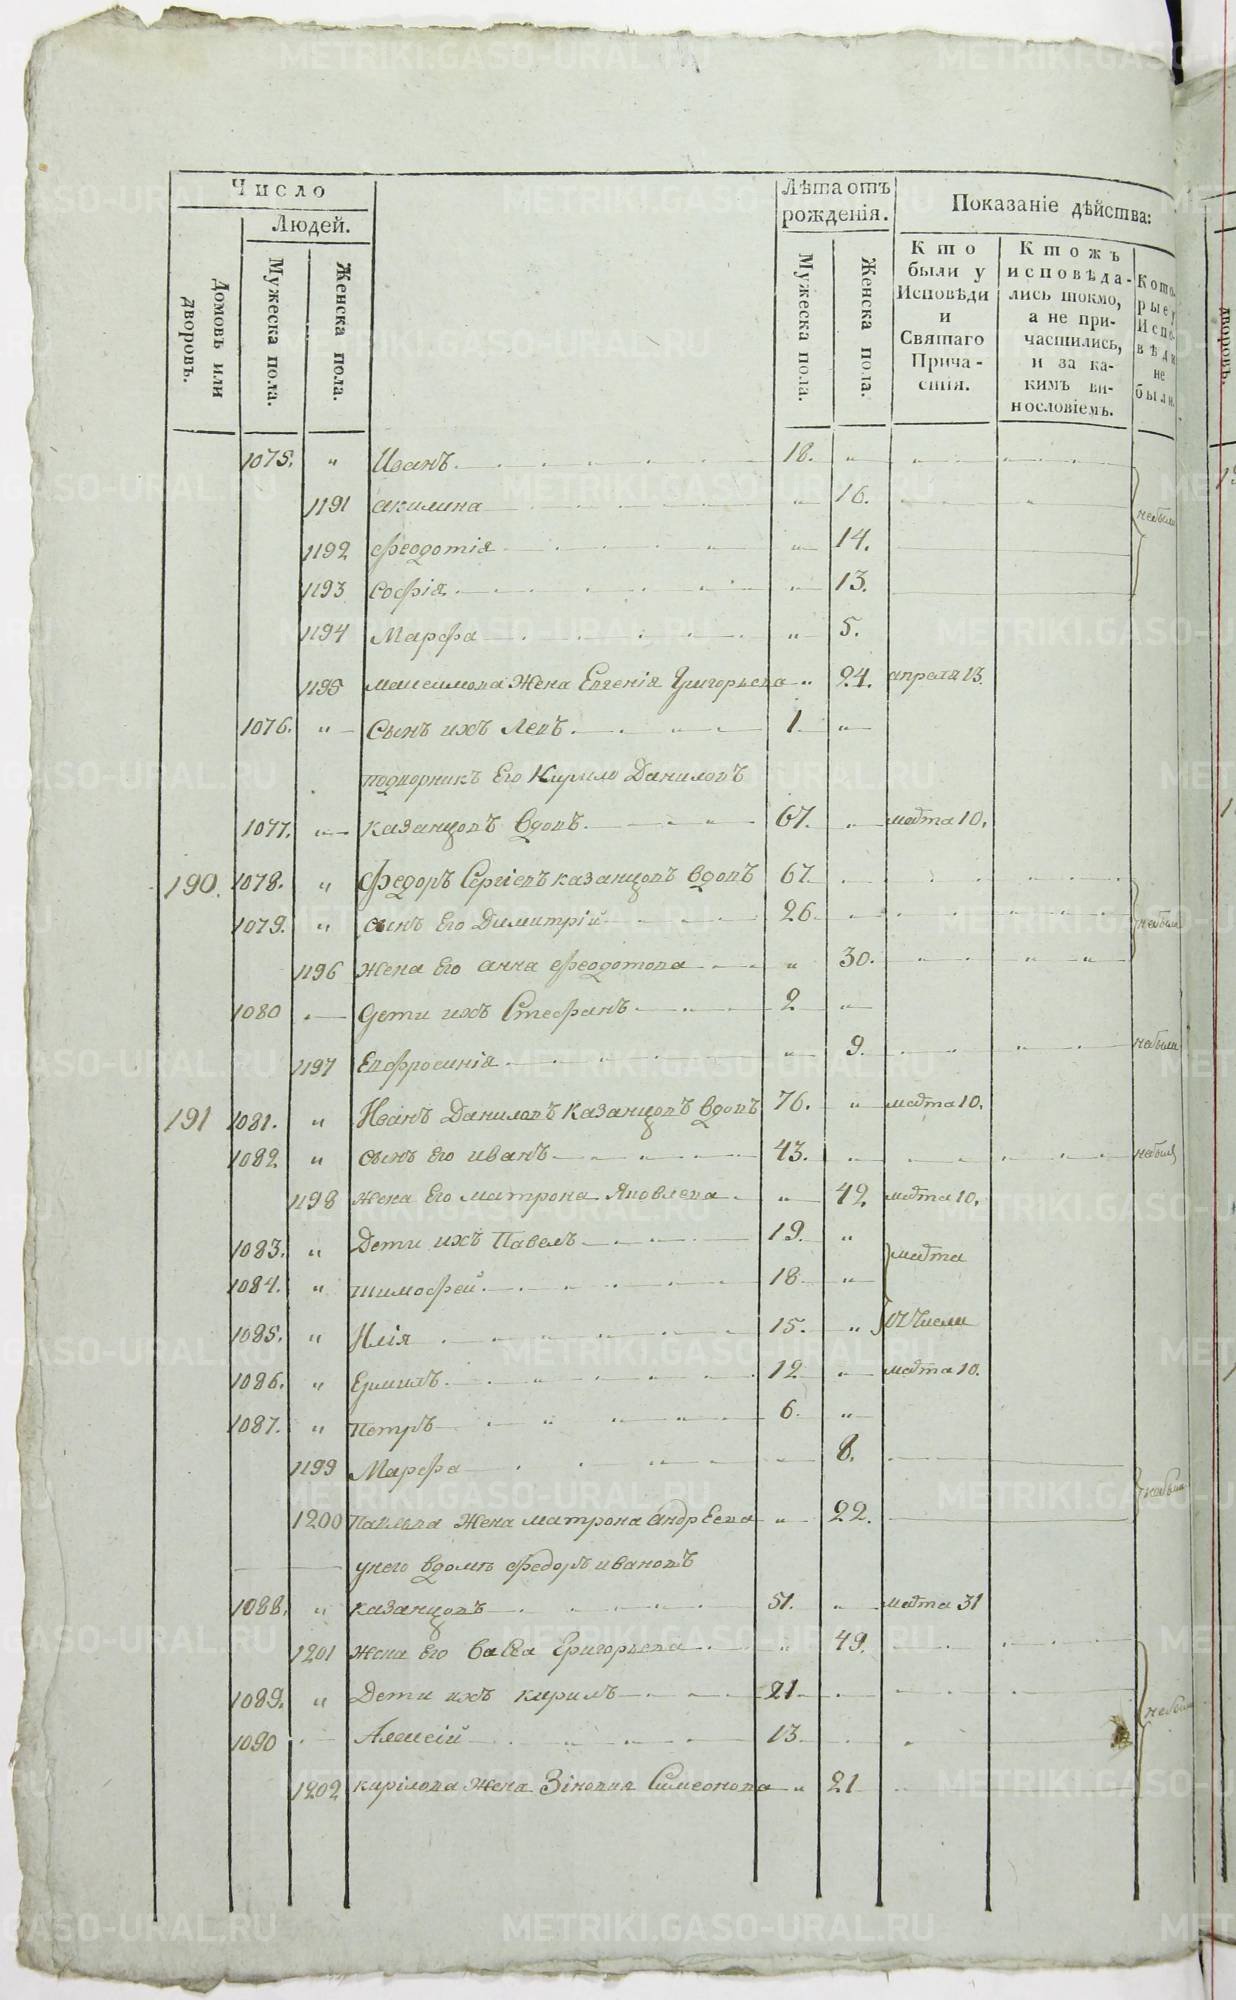 Число
Людей.
Домовъ или дворовъ.
Мужеска пола.
Женска пола.
Лѣта отъ рожденія.
Мужеска пола.
Женска пола.
Показаніе дѣйства:
Кто были у Исповѣди и Святаго Причастія.
Ктожъ исповѣдались токмо, а не причастились, и за какимъ винословіемъ.
Которые у Исповѣди не были.
1075. " Иванъ 18. "
1191 акилина " 16. небыли
1192 Феодотія " 14.
1193 Софія " 13.
1194 Марфа " 5.
1195 Жена Евгенія Григорьева " 24. апреля 13.
1076. " Сынъ ихъ Левъ 1 "
Его Кирило Даниловъ
1077. " Казанцовъ вдовъ 67. " марта 10.
190. 1078. " Федоръ Сергіевъ казанцовъ вдовъ 67
1079. " сынъ Его Димитрій 26 небыли
1196 жена Его анна Феодотова " 30.
1080 Дети ихъ Стефанъ 2 "
1197 Евфросинія " 9. небыли
191 1081. " Иванъ Даниловъ Казанцовъ вдовъ 76. " марта 10.
1082 " сынъ Его иванъ 43. небыли
1198 жена Его матрона Яковлева " 42. марта 10.
1083. " Дети ихъ Павелъ 19. " марта
1084. " тимофей 18 "
1085. " Илія 15. "
1086. " Ермилъ 12 марта 10.
1087. " Петръ 6. "
1199 Марфа 8. небыли
1200 Павлова Жена матрона андреева " 22.
унего вдомѣ Федоръ ивановъ
1088. " казанцовъ 51. " марта 31
1201 Жена Его Григорьева " 49.
1089. " Дети ихъ кирилъ 21 небыли
1090 Алексій 13
1202 кирилова Жена Зіновия Симеонова " 21
METRIKI.GASO-URAL.RU